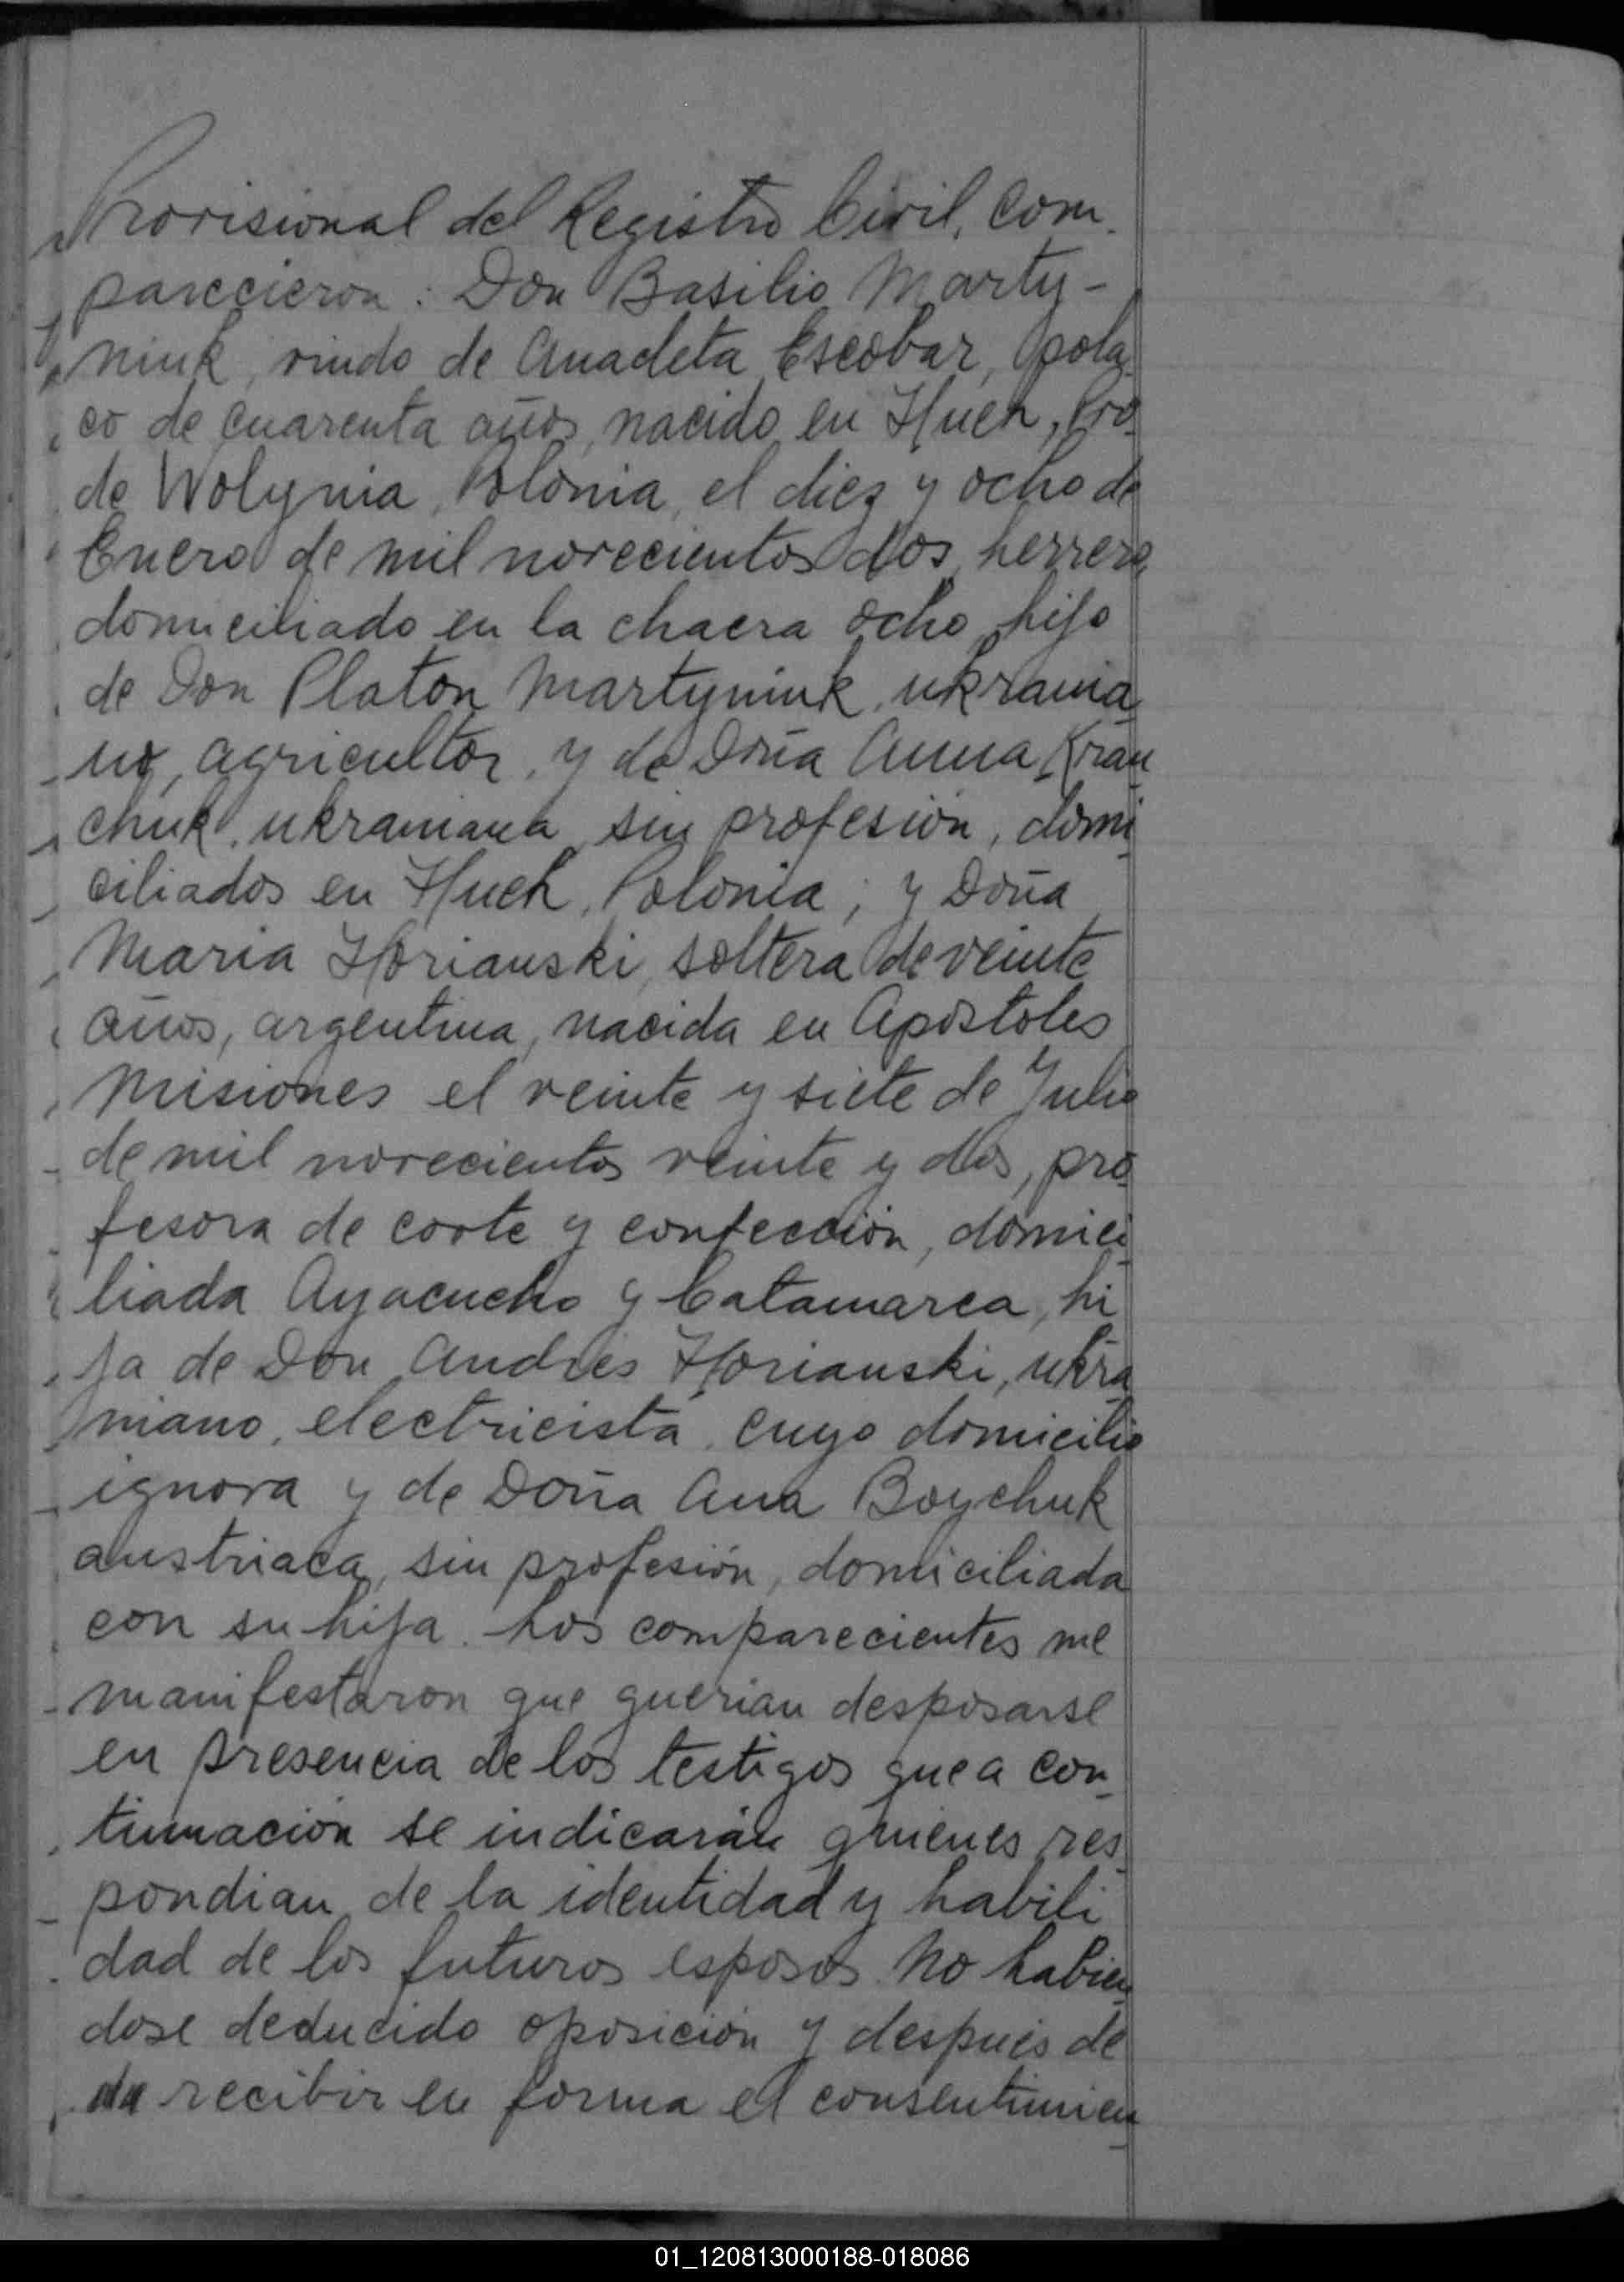 Provisional del Registro Civil, com-
parecieron: Don Basilio Marty-
niuk, viudo de Anacleta Escobar, pola-
co de cuarenta años, nacido en Huch, Pro-
de Wolynia, Polonia, el diez y ocho de
Enero de mil novecientos dos, herrero,
domiciliado en la chacra ocho, hijo
de Don Platon Martyniuk, ukrania-
no, agricultor, y de Doña Anna Krau-
chuk, ukraniana, sin profesión, domi-
ciliados en Huch, Polonia; y Doña
Maria Horianski, soltera de veinte
años, argentina, nacida en Apostoles
Misiones el veinte y siete de Julio
de mil novecientos veinte y dos, pro-
fesora de corte y confección, domici-
liada Ayacucho y Catamarca, hi
ja de Don Andrés Horianski, ukra-
niano, electricista, cuyo domicilio
ignora y de Doña Ana Boychuk
austriaca, sin profesión, domiciliada
con su hija. Los comparecientes me
manifestaron que querian desposarse
en presencia de los testigos que a con-
tinuación se indicarán quienes res-
pondian de la identidad y habili-
dad de los futuros esposos. No habien-
dose deducido oposición y después de
de recibir en forma el consentimien-
01_120813000188-018086